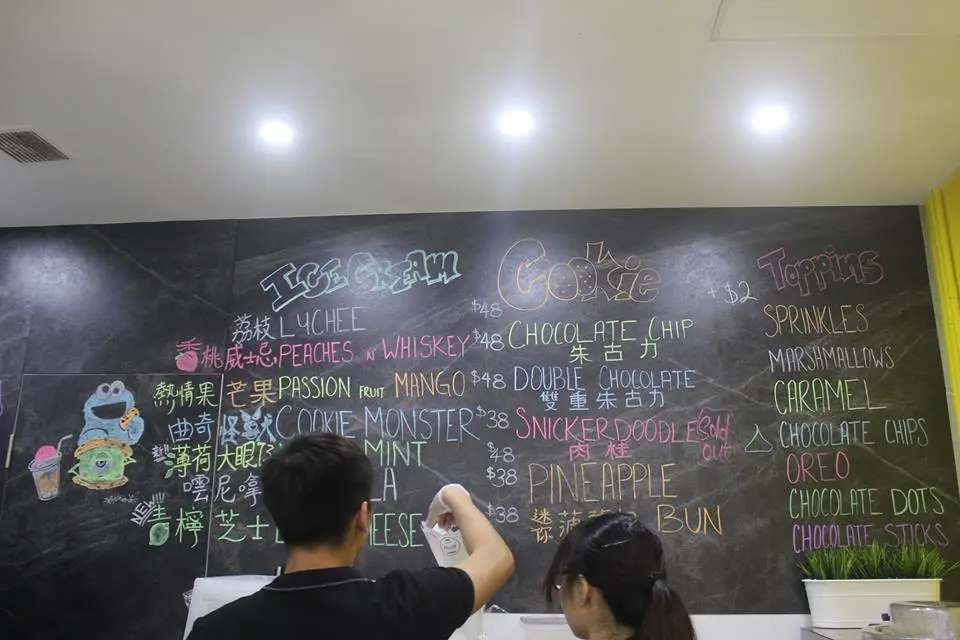 ICE CREAM
荔枝 LYCHEE $48
桃威士忌 PEACHES N WHISKEY $48
熱情果 芒果 PASSION FRUIT MANGO $48
曲奇 怪獸 COOKIE MONSTER $38
薄荷 大眼仔 MINT $48
雲尼拿 LA $38
NEW!!
青檸 芝士 CHEESE $38
Cookie
CHOCOLATE CHIP
朱古力
DOUBLE CHOCOLATE
雙重朱古力
SNICKERDOODLE Sold out
肉桂
PINEAPPLE
BUN
迷你菠
Toppins
+$2
SPRINKLES
MARSHMALLOWS
CARAMEL
CHOCOLATE CHIPS
OREO
CHOCOLATE DOTS
CHOCOLATE STICKS